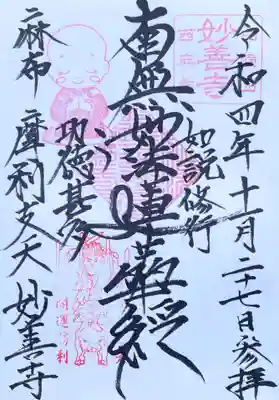 令和四年十一月二十七日参拝
如説修行
南無妙法蓮華経
功徳甚多
麻布 摩利支天 妙善寺
妙善寺
開運